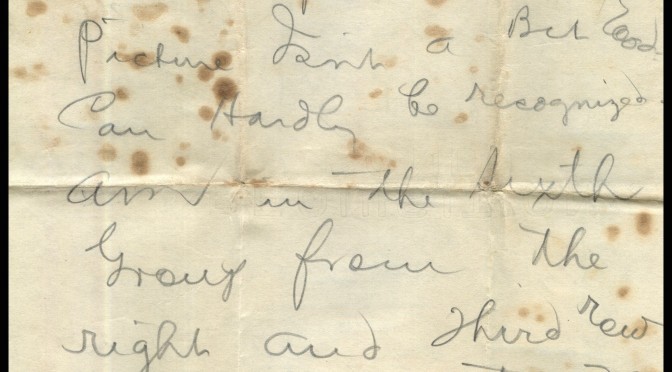 Picture Isnt a Bit Good
Can Hardly be recognized
am in the sixth
Group from the
right and third row